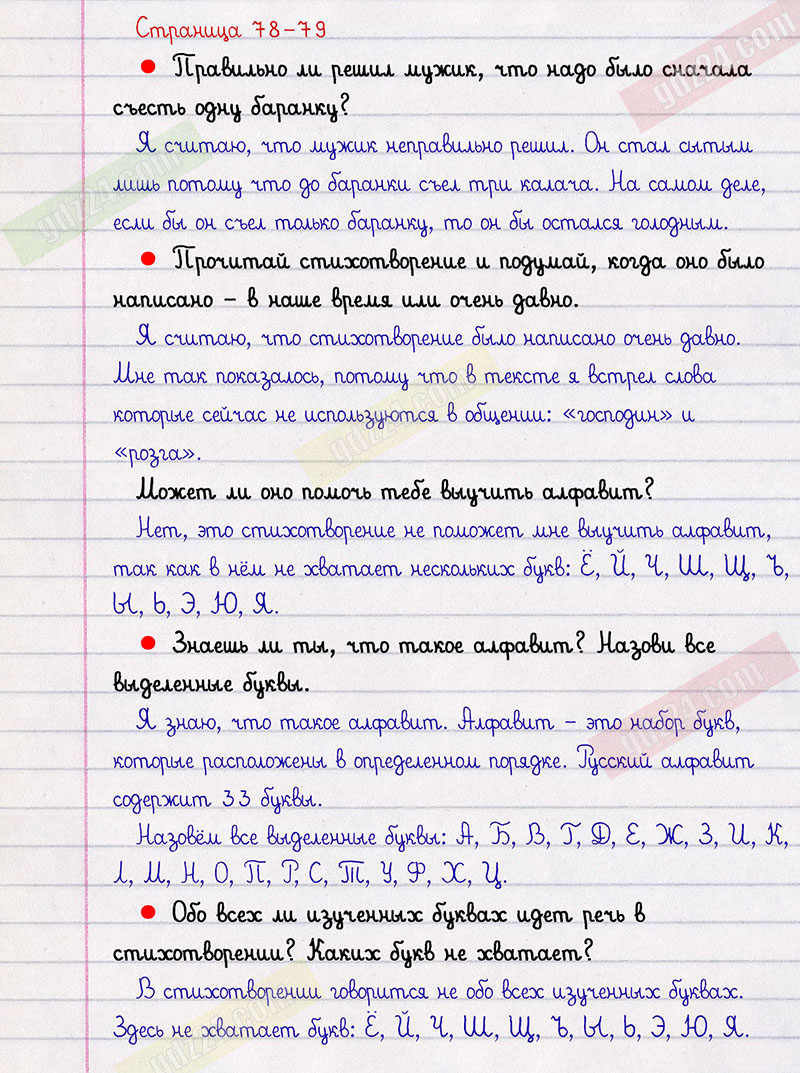 Страница 78-79
● Правильно ли решил мужик, что надо было сначала
съесть одну баранку?
Я считаю, что мужик неправильно решил. Он стал сытым
лишь потому что до баранки съел три калача. На самом деле,
если бы он съел только баранку, то он бы остался голодным.
● Прочитай стихотворение и подумай, когда оно было
написано – в наше время или очень давно.
Я считаю, что стихотворение было написано очень давно.
Мне так показалось, потому что в тексте я встрел слова
которые сейчас не используются в общении: «господин» и
«розга».
Может ли оно помочь тебе выучить алфавит?
Нет, это стихотворение не поможет мне выучить алфавит,
так как в нём не хватает нескольких букв: Ё, Й, Ч, Ш, Щ, Ъ,
Ы, Ь, Э, Ю, Я.
● Знаешь ли ты, что такое алфавит? Назови все
выделенные буквы.
Я знаю, что такое алфавит. Алфавит – это набор букв,
которые расположены в определенном порядке. Русский алфавит
содержит 33 буквы.
Назовём все выделенные буквы: А, Б, В, Г, Д, Е, Ж, З, И, К,
Л, М, Н, О, П, Р, С, Т, У, Ф, Х, Ц.
● Обо всех ли изученных буквах идет речь в
стихотворении? Каких букв не хватает?
В стихотворении говорится не обо всех изученных буквах.
Здесь не хватает букв: Ё, Й, Ч, Ш, Щ, Ъ, Ы, Ь, Э, Ю, Я.
gdz24.com
gdz24.com
gdz24.com
gdz24.com
gdz24.com